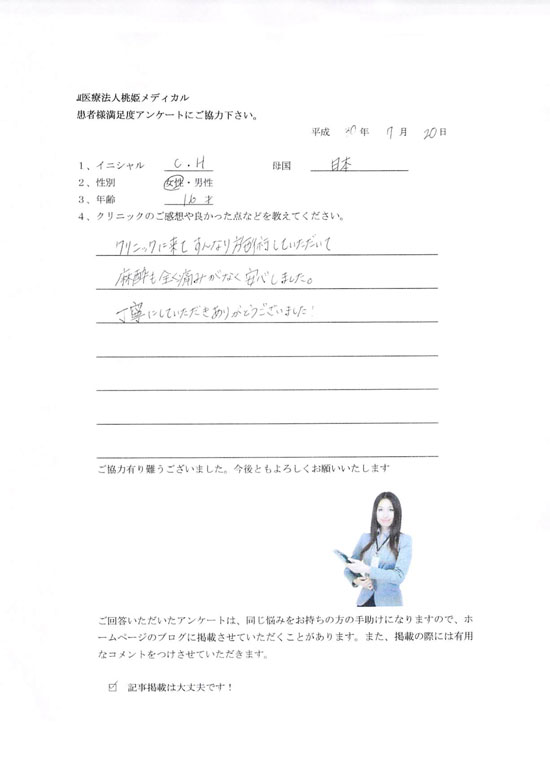 医療法人桃姫メディカル
患者様満足度アンケートにご協力下さい。
平成 年 7月 20日
1、イニシャル C.H 母国 日本
2、性別 女性・男性
3、年齢 才
4、クリニックのご感想や良かった点などを教えてください。
クリニックに来てすんなり施術していただいて
麻酔も全く痛みがなく安心しました。
丁寧にしていただきありがとうございました!
ご協力有り難うございました。今後ともよろしくお願いいたします
ご回答いただいたアンケートは、同じ悩みをお持ちの方の手助けになりますので、ホ
ームページのブログに掲載させていただくことがあります。また、掲載の際には有用
なコメントをつけさせていただきます。
☑ 記事掲載は大丈夫です！